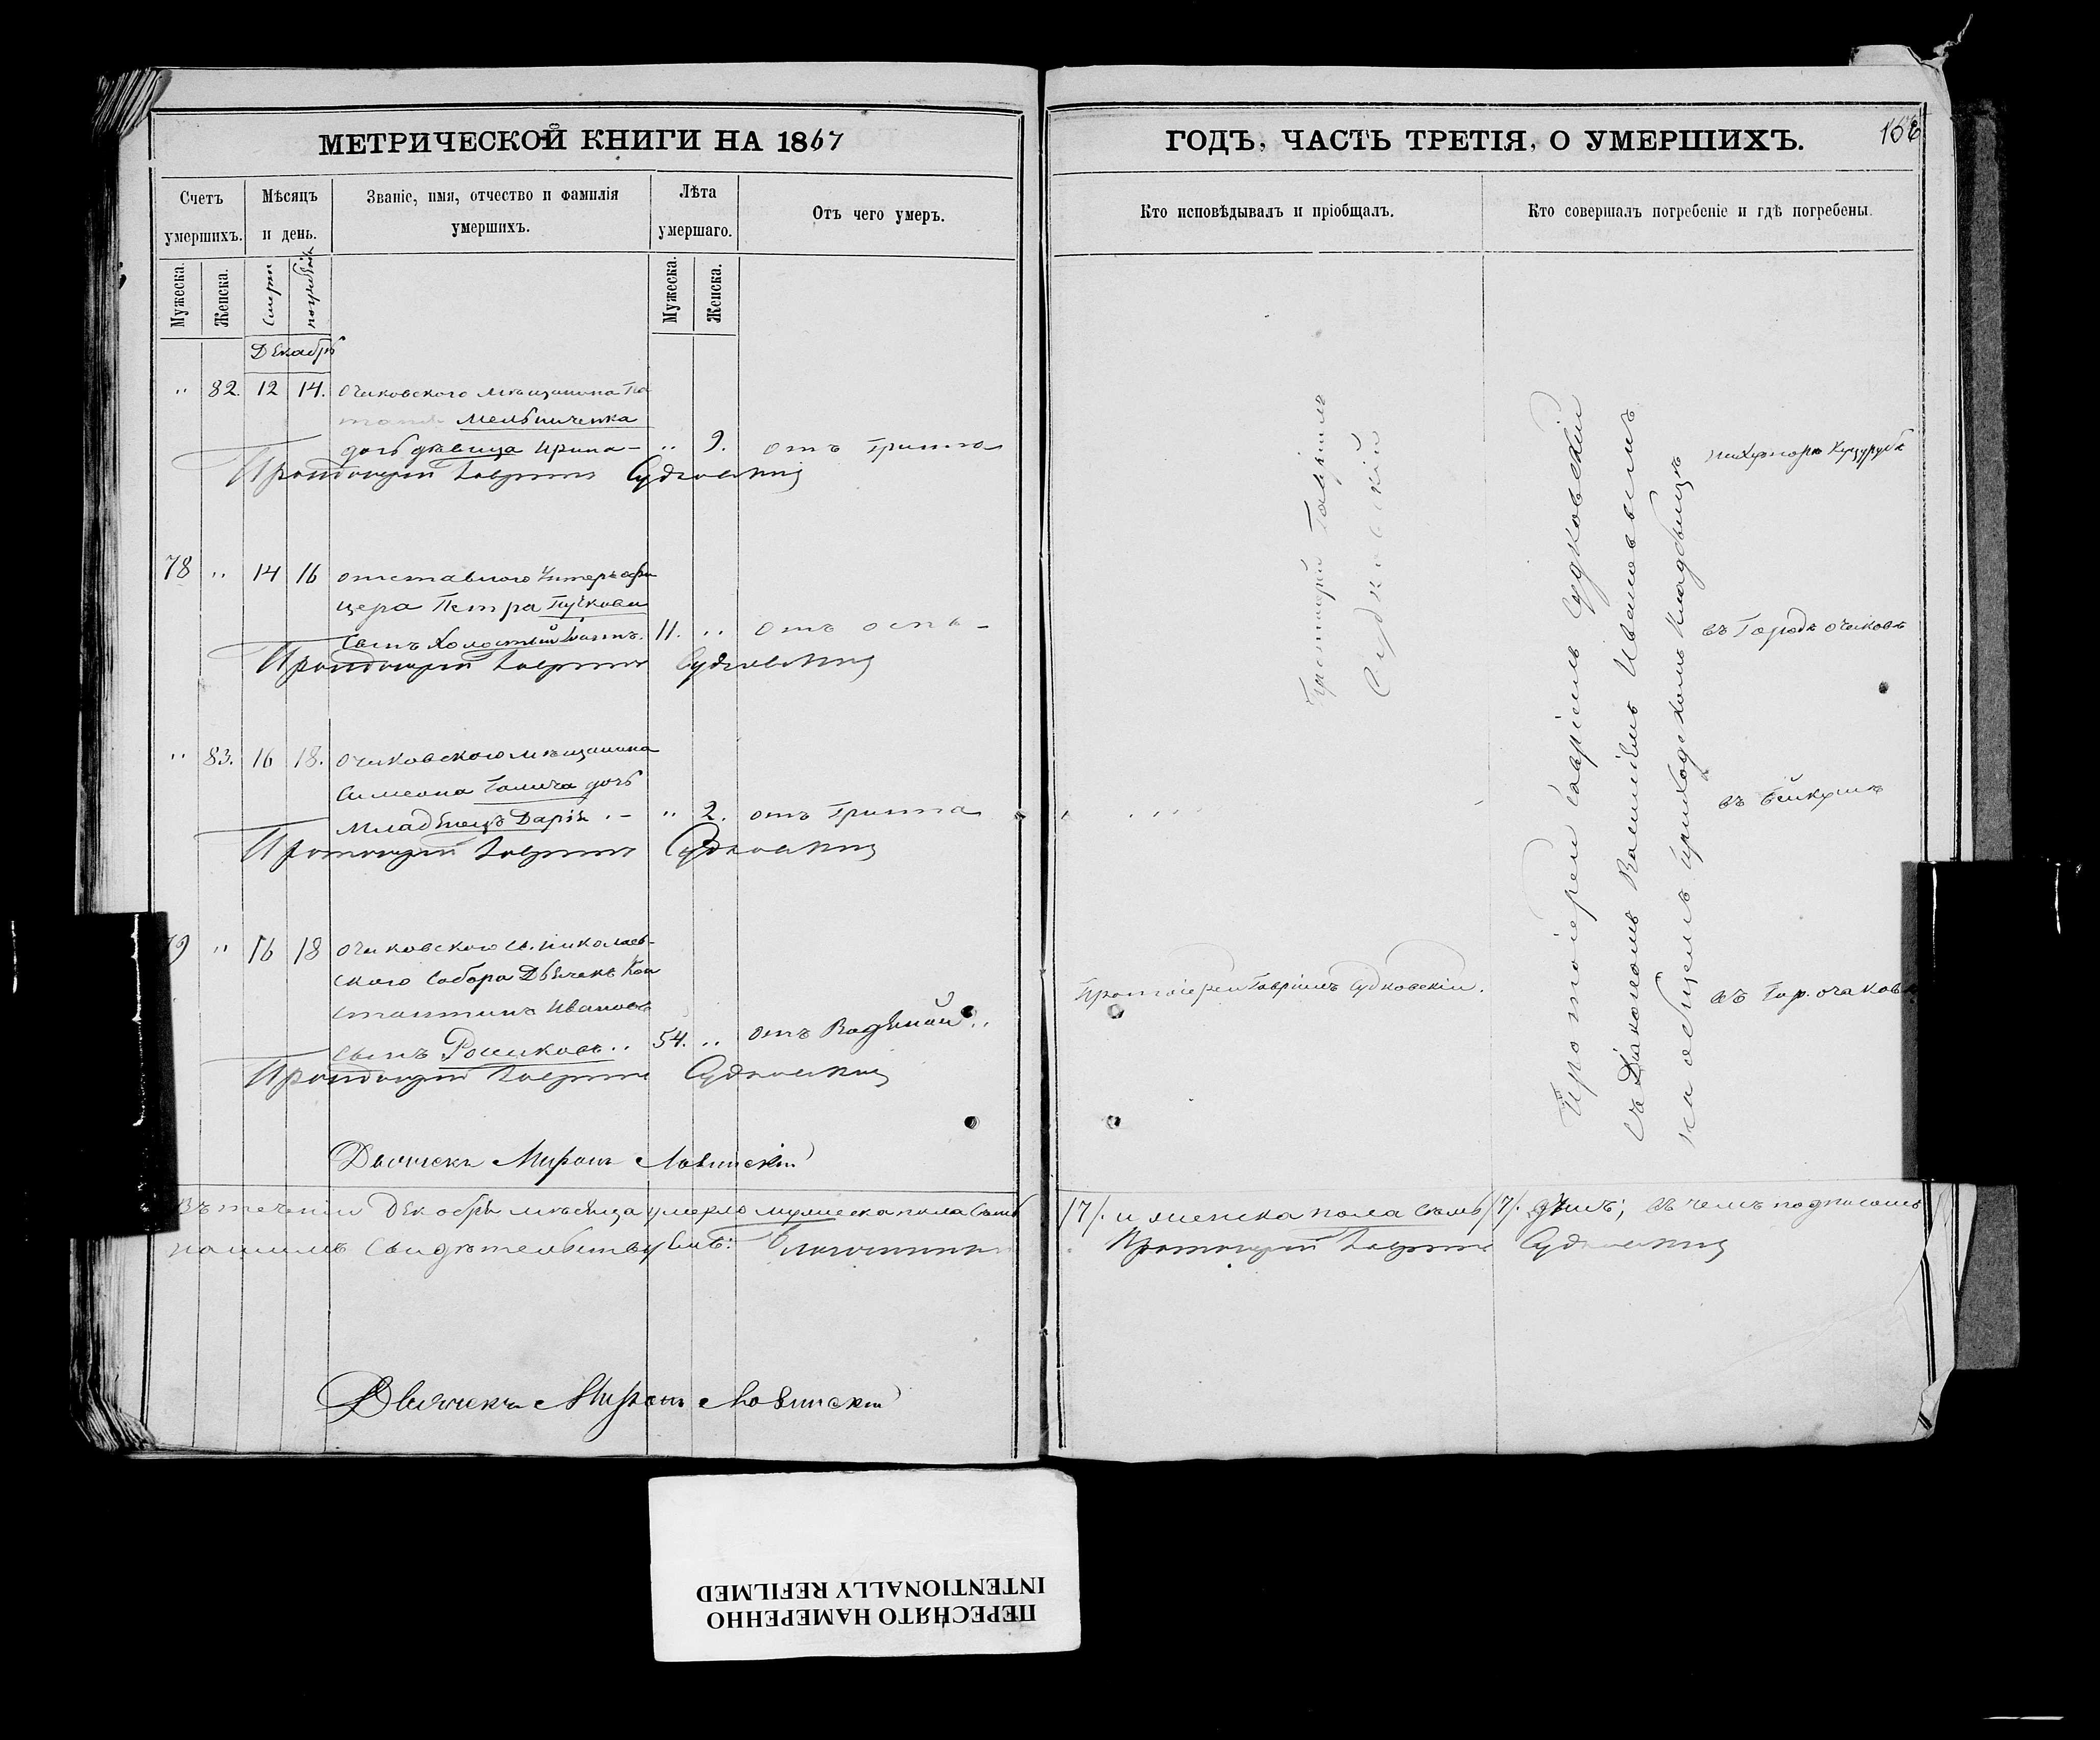 МЕТРИЧЕСКОЙ КНИГИ НА 1867
Счетъ умершихъ.
Мѣсяцъ и день.
Званіе, имя, отчество и фамилія умершихъ.
Лѣта умершаго.
Отъ чего умеръ.
Мужеска.
Женска.
Смерти
погребенія
Мужеска.
Женска.
Декабрь
" 82. 12 14. Очаковского мѣщанина По
Мельниченка
дочь дѣвица Ирина — " 9. отъ Грипа
Протоіерей Гавріилъ Судковскій
78 " 14 16 отставного Унтеръ офи
цера Петра Пучкова
сынъ Холостый 11. " отъ оспы -
Протоіерей Гавріилъ Судковскій
" 83. 16 18. Очаковского мѣщанина
Симеона Галича дочь
Младенецъ Дарія . - " 2. отъ Грипа
Протоіерей Гавріилъ Судковскій
79 " 16 18 Очаковского Св. Николаев-
ского Собора Дьячекъ Кон
стантинъ Ивановъ
сынъ Рошковъ " 54. " отъ Водяной "
Протоіерей Гавріилъ Судковскій
Дьячекъ Миронъ Ловинскій
Въ теченіи Декабря мѣсяца умерло мужеска пола семь
нашимъ свидѣтельствуемъ: Благочинный
Дьячекъ Миронъ Ловинскій
ГОДЪ, ЧАСТЬ ТРЕТІЯ, О УМЕРШИХЪ.
Кто исповѣдывалъ и пріобщалъ.
Кто совершалъ погребеніе и гдѣ погребены.
Протоіерей Гавріилъ
Судковскій
Протоіерей Гавріилъ Судковскій.
Протоіерей Гавріилъ Судковскій
съ Діакономъ Василіемъ Ивановымъ
на общемъ приходскомъ кладбищѣ
на Хуторѣ Куцурубѣ
въ Городѣ Очаковѣ
въ Бейкушѣ
въ Гор. Очаковѣ
/7/. и женска пола семь /7/. душъ; въ чемъ подписомъ
Протоіерей Гавріилъ Судковскій
ПЕРЕСНЯТО НАМЕРЕННО
INTENTIONALLY REFILMED